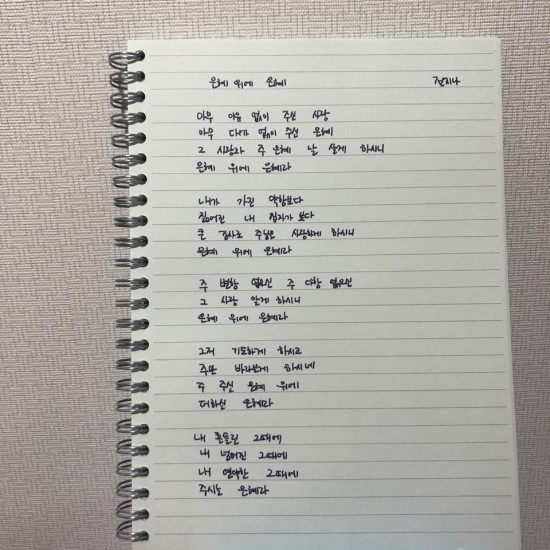 은혜 위에 은혜 전지나
아무 이유 없이 주신 사랑
아무 대가 없이 주신 은혜
그 사랑과 주 은혜 날 살게 하시니
은혜 위에 은혜라
내가 가진 약함보다
짊어진 내 십자가 보다
큰 감사로 주님을 사랑하게 하시니
은혜 위에 은혜라
주 변함 없으신 주 다함 없으신
그 사랑 알게 하시니
은혜 위에 은혜라
그저 기도하게 하시고
주만 바라보게 하시네
주 주신 은혜 위에
더하신 은혜라
내 흔들린 그때에
내 넘어진 그때에
내 연약한 그때에
주시는 은혜라